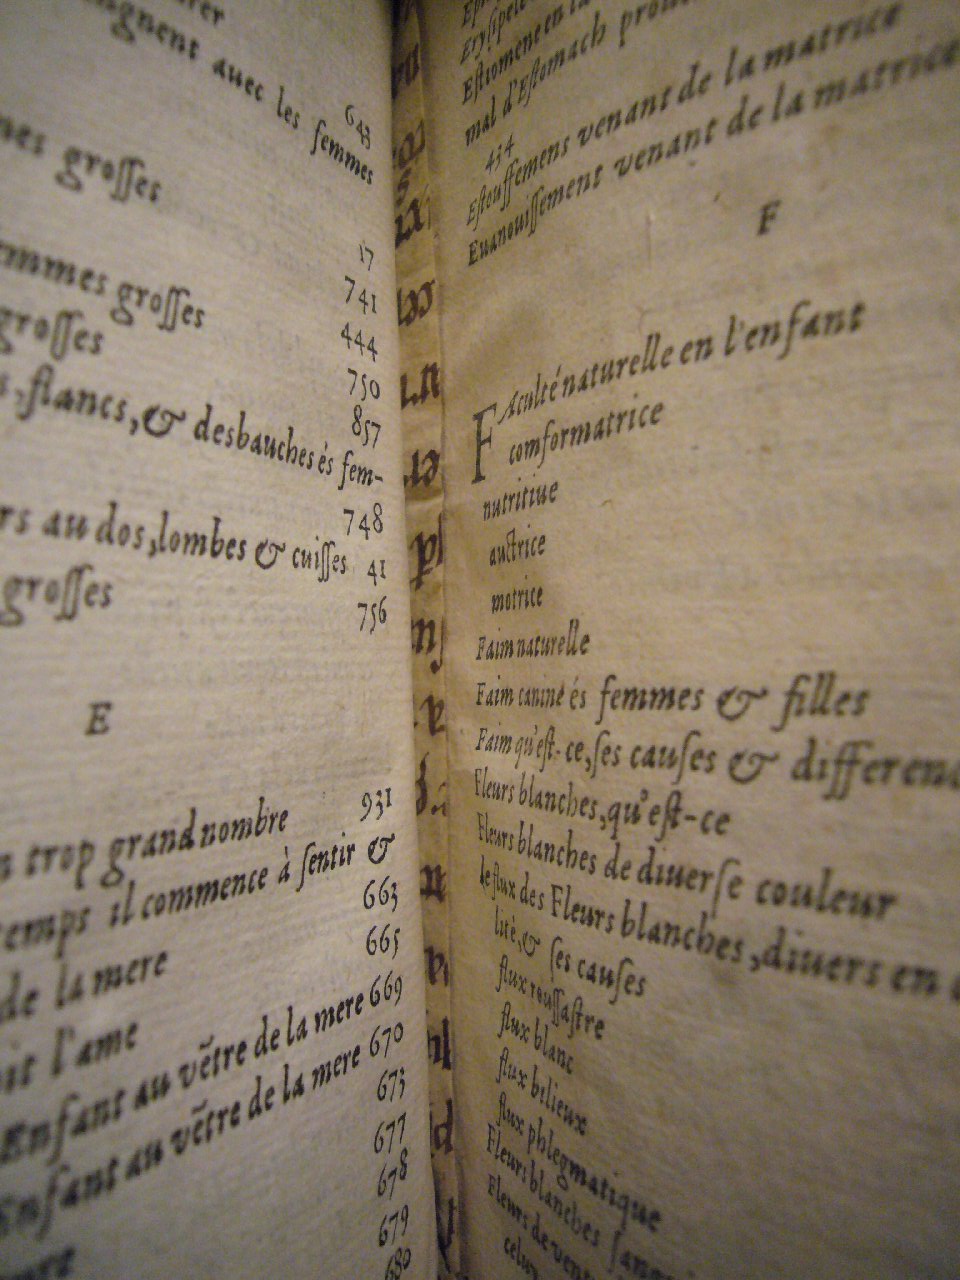 avec les femmes
643
grosses
17
femmes grosses 741
444
grosses 750
857
flancs, & desbauches és fem-
748
au dos, lombes & cuisses 41
grosses 756
E
trop grand nombre 931
temps il commence à sentir &
663
de la mere 665
l'ame
Enfant au vẽtre de la mere 669
Enfant au vẽtre de la mere 670
673
677
678
679
680
mal d'Estomach
434
Estouffemens venant de la matrice
Euanouissement venant de la matrice
F
FAculté naturelle en l'enfant
comformatrice
nutritiue
auctrice
motrice
Faim naturelle
Faim canine és femmes & filles
Faim qu'est-ce, ses causes & differenc
Fleurs blanches, qu'est-ce
Fleurs blanches de diuerse couleur
le flux des Fleurs blanches, diuers en
lité, & ses causes
flux roussastre
flux blanc
flux bilieux
flux phlegmatique
Fleurs blanches
Fleurs de